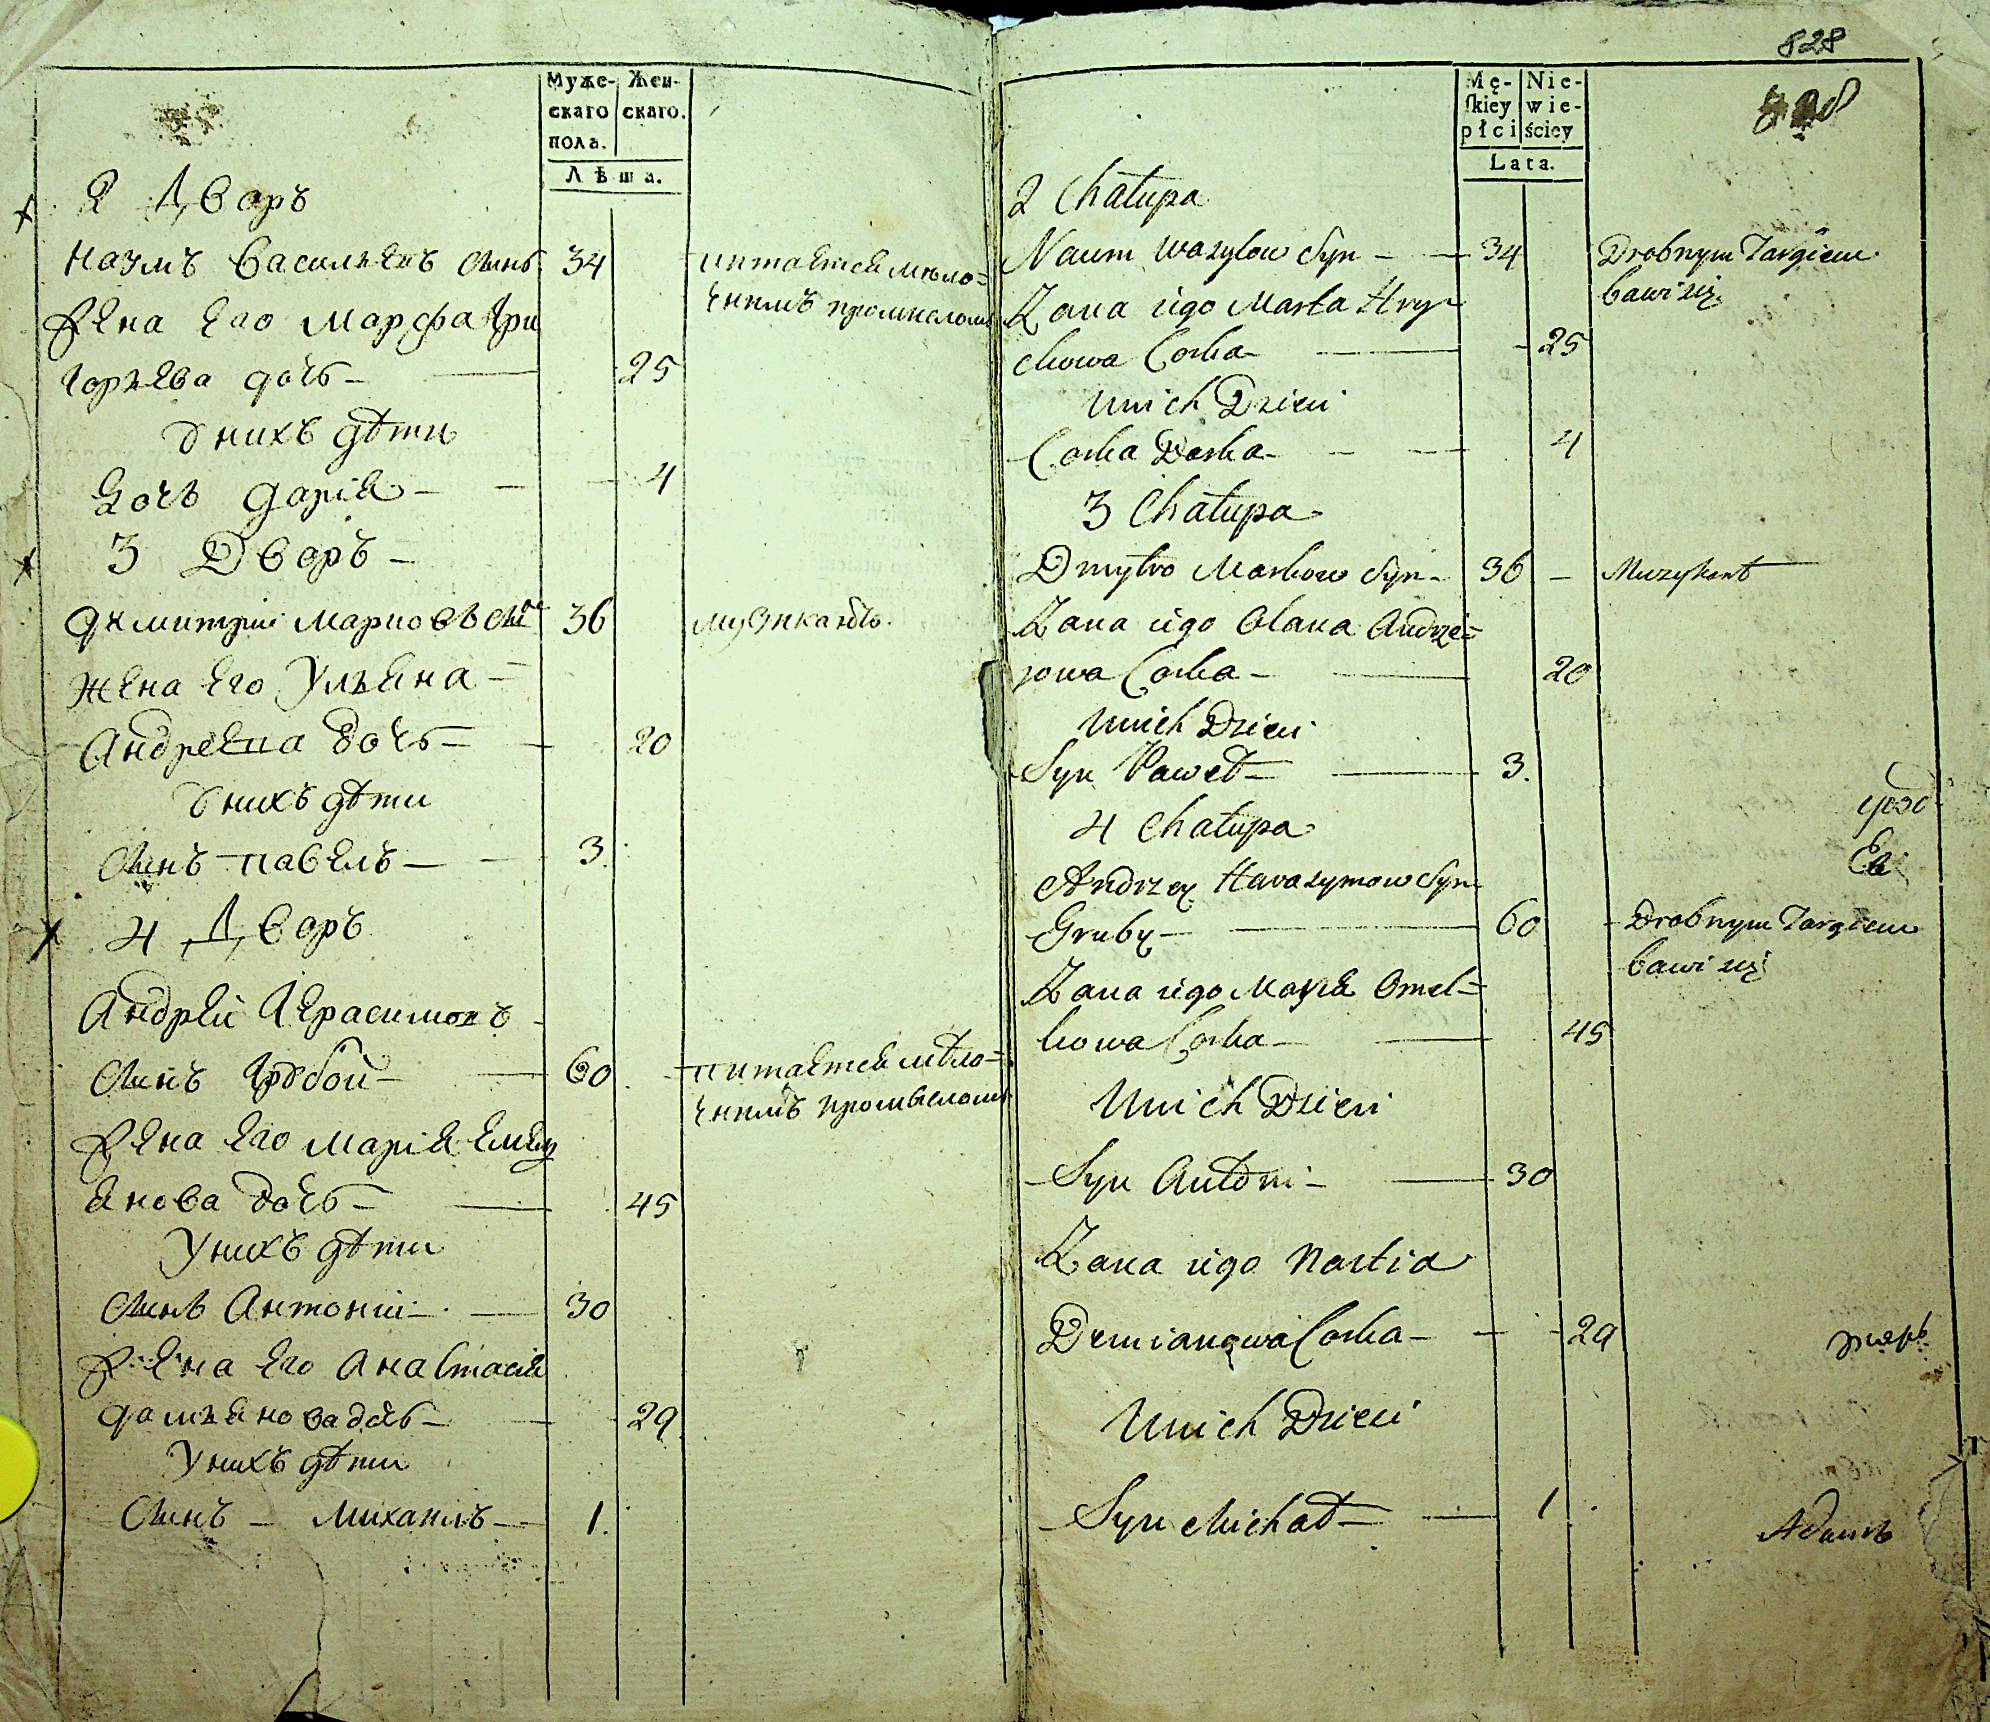 Муже-
скаго
пола.
Жен-
скаго.
Лѣта.
2 Дворъ
Наумъ Васильевъ сынъ 34 питается мѣло=
чнымъ промысломъ
Жена Его Марфа Гри
горьева дочь 25
У нихъ дѣти
Дочь Дарія 4
3 Дворъ
Дмитрій Марковъ сынъ 36 музыкантъ.
Жена Его Ульяна
Андреева дочь 20
У нихъ дѣти
Сынъ Павелъ 3
4 Дворъ
Андрей Герасимовъ
Сынъ Грубой 60 питается мѣло=
чнымъ промысломъ
Жена Его Марія Емель
янова дочь 45
У нихъ дѣти
Сынъ Антоній 30
Жена Его Анастасія
Дамьянова дочь 29
У нихъ дѣти
Сынъ Михаилъ 1.
828
Mę-
skiey
płci
Nie-
wie-
ściey
Lata.
2 Chałupa
Naum Wasylow Syn 34 Drobnym Targiem
bawi się
Zona iego Marta Hry
ckowa Corka 25
U nich Dzieci
Corka Darka 4
3 Chałupa
Dmytro Markow Syn 36 Muzykant
Zona iego Olana Andrze=
iowa Corka 20
U nich Dzieci
Syn Paweł 3.
4 Chałupa
Andrzey Harasymow Syn
Gruby 60 Drobnym Targiem
bawi się
Zona iego Marya Omel=
kowa Corka 45
U nich Dzieci
Syn Antoni 30
Zona iego Nastia
Demianowa Corka 29
U nich Dzieci
Syn Michał 1
Адамъ